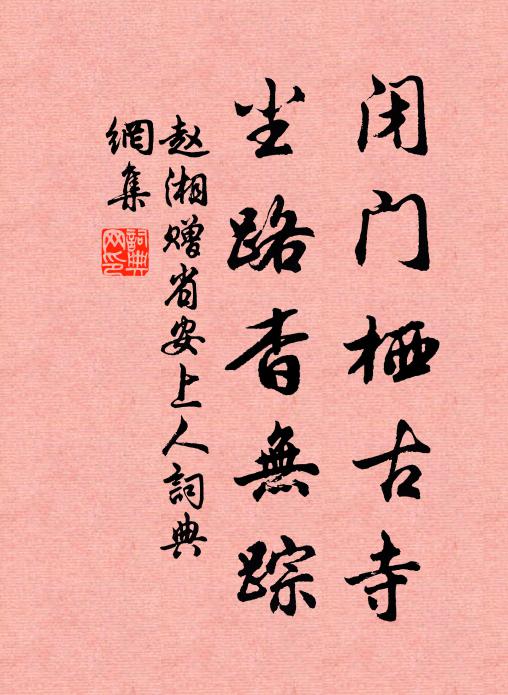 闭门栖古寺
尘路杳無踪
赵湘赠省安上人詞典
網集
詞典網印